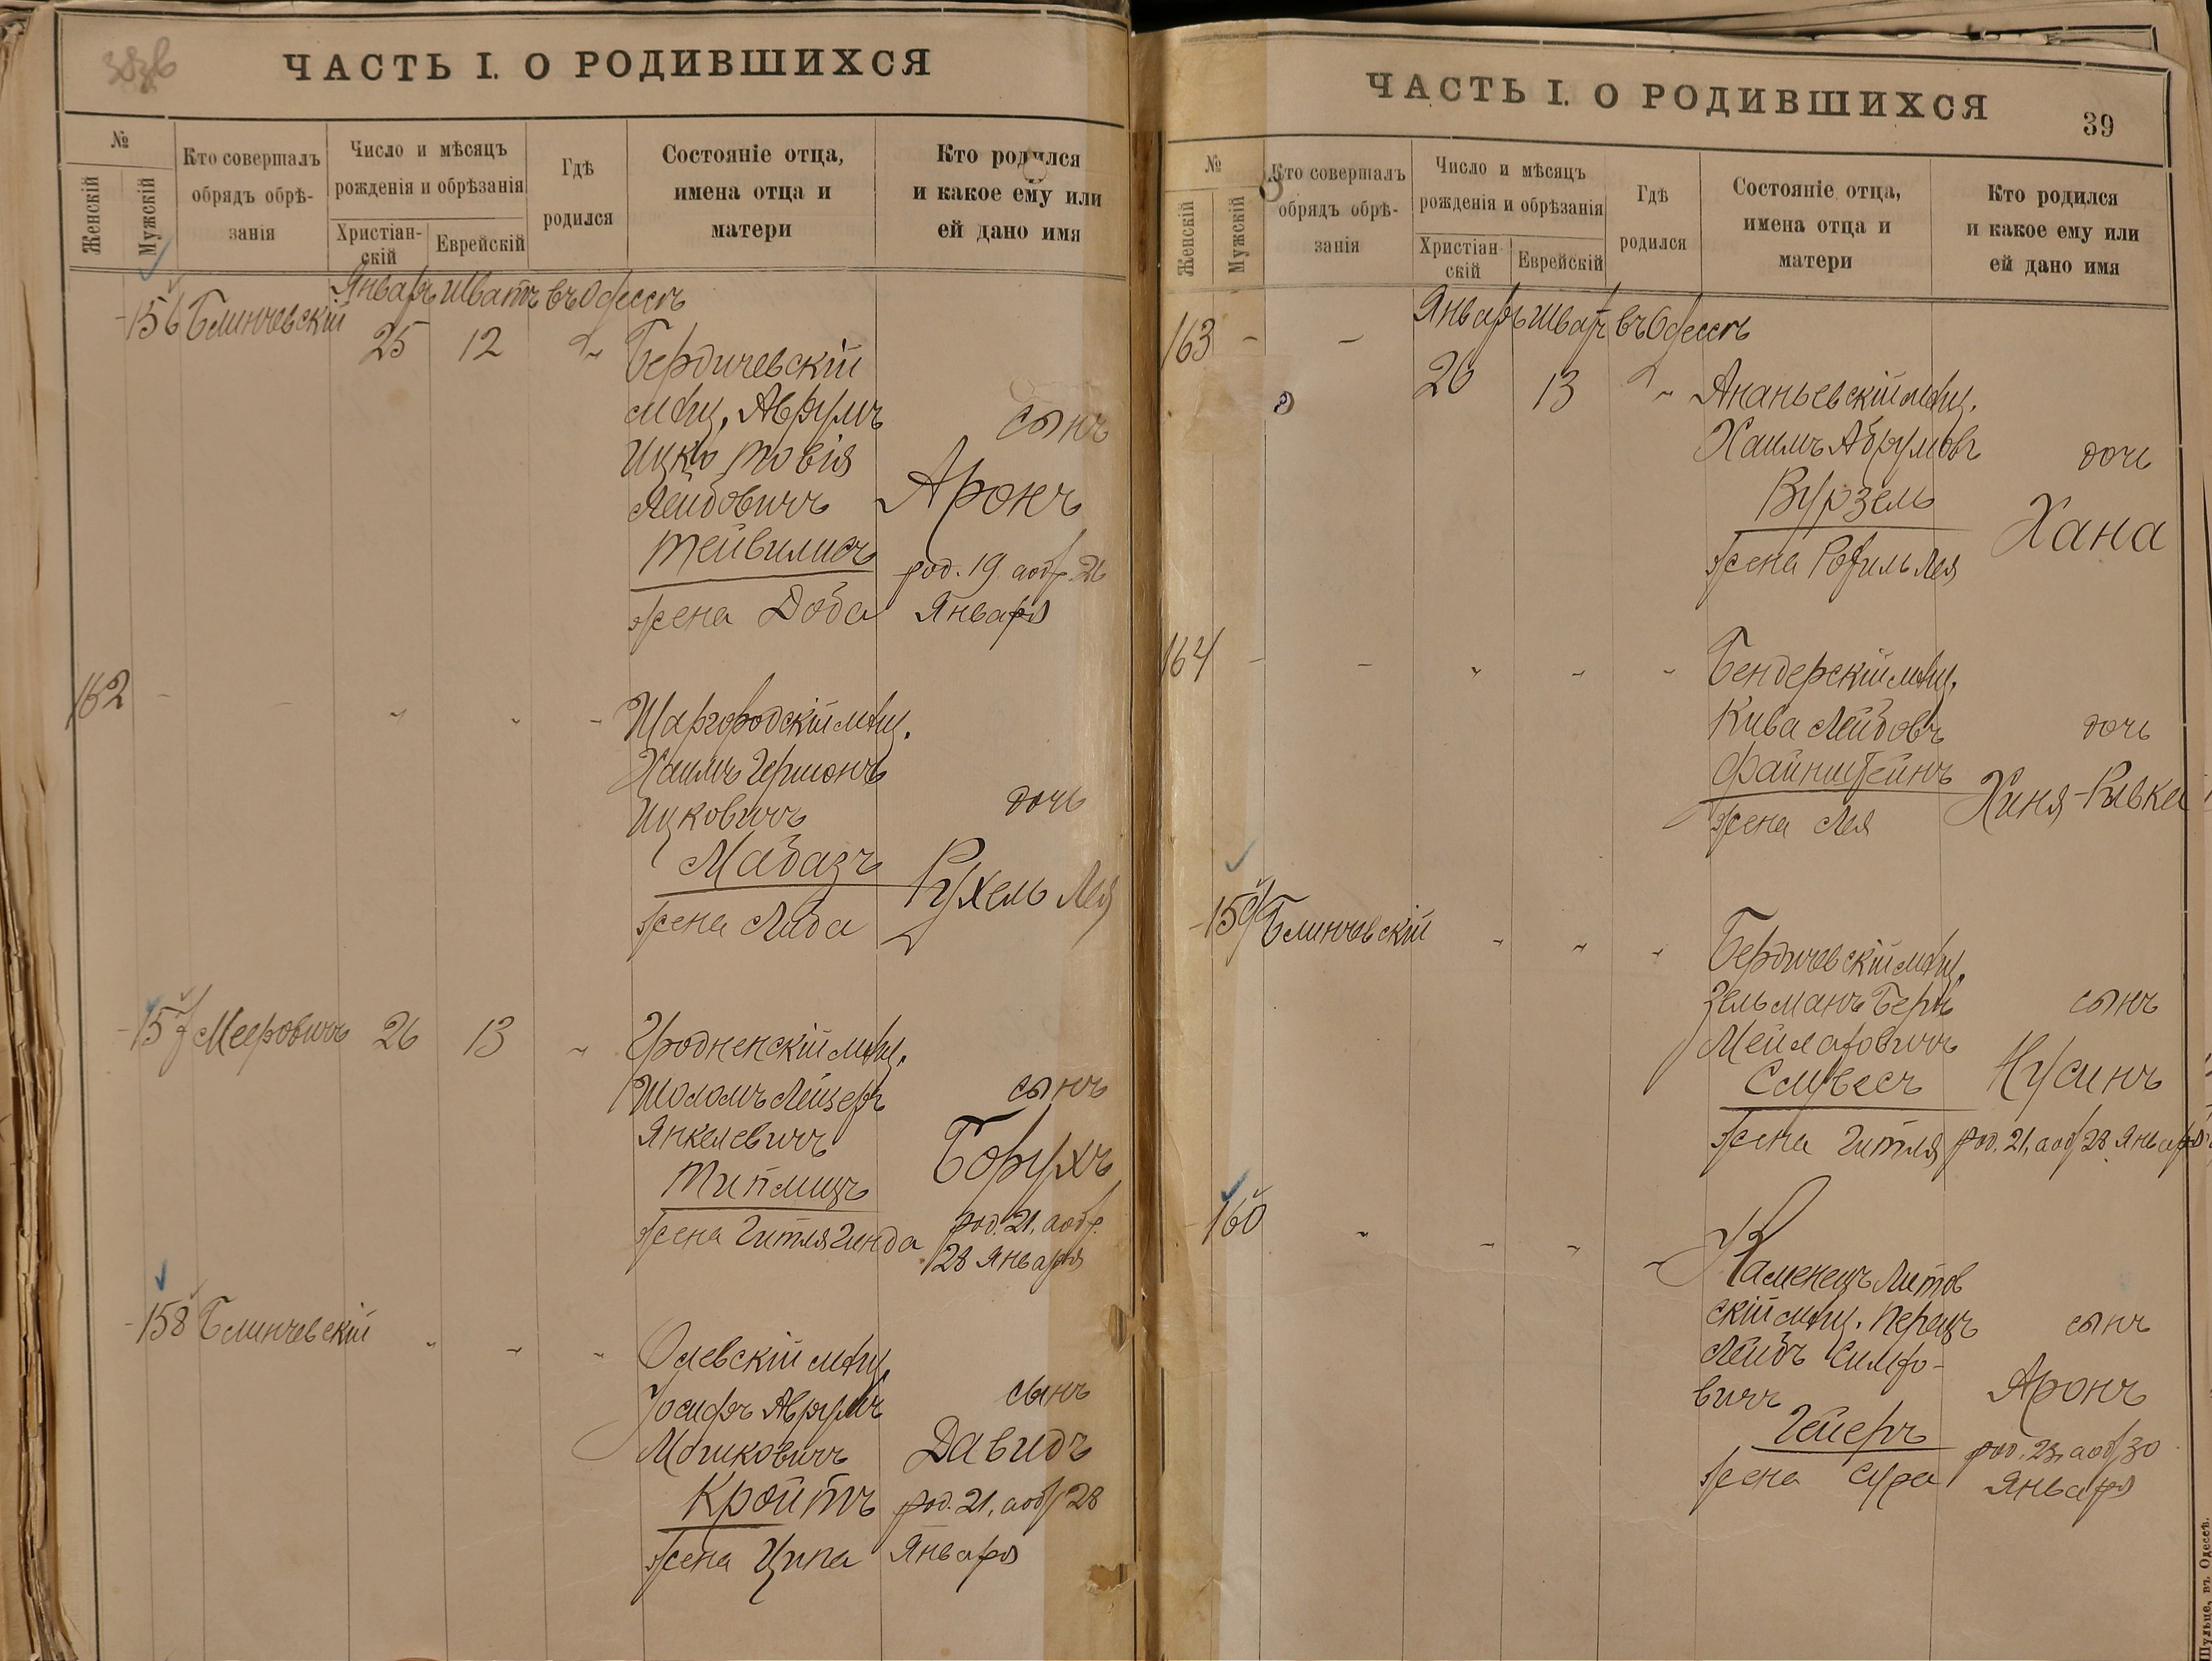 ЧАСТЬ I. О РОДИВШИХСЯ
№
Женскій
Мужскій
Кто совершалъ
обрядъ обрѣ-
занія
Число и мѣсяцъ
рожденія и обрѣзанія
Христіан-
скій
Еврейскій
Гдѣ
родился
Состояніе отца,
имена отца и
матери
Кто родился
и какое ему или
ей дано имя
Январь Шватъ въ Одессѣ
156 Блинчевскій
25 12
Бердичевскій
мѣщ. Аврумъ
Ицко Товія
Лейбовичъ
Тейвилисъ
жена Доба
сынъ
Аронъ
род. 19 а обр. 26
Января
162 - - " " "
Шаргородскій мѣщ.
Хаимъ Гершонъ
Ицковичъ
Мабазъ
жена Люба
дочь
Рухель Лея
- 157 Мееровичъ 26 13 "
Гродненскій мѣщ.
Шоломъ Лейзеръ
Янкелевичъ
Типлицъ
жена Гитля Гинда
сынъ
Борухъ
род. 21, а обр.
28 Января
- 158 Блинчевскій " " "
Олевскій мѣщ.
Іосифъ Аврумъ
Мошковичъ
Кройтъ
жена Ципа
сынъ
Давидъ
род. 21, а обр 28
Января
ЧАСТЬ I. О РОДИВШИХСЯ
39
№
Женскій
Мужскій
Кто совершалъ
обрядъ обрѣ-
занія
Число и мѣсяцъ
рожденія и обрѣзанія
Христіан-
скій
Еврейскій
Гдѣ
родился
Состояніе отца,
имена отца и
матери
Кто родился
и какое ему или
ей дано имя
Январь Шватъ въ Одессѣ
163 - -
26 13
Ананьевскій мѣщ.
Хаимъ Абрумовъ
Вурзель
жена Рохиль Лея
дочь
Хана
164 - - " " "
Бендерскій мѣщ.
Кива Лейбовъ
Файнштейнъ
жена Лея
дочь
Хиня-Ривка
- 159 Блинчевскій " " "
Бердичевскій мѣщ.
Зельманъ Беръ
Мейлаховичъ
жена Гитля
сынъ
Нусинъ
род. 21, а обр 28 Января
160 " " " "
Каменецъ Литов
скій мѣщ. Перецъ
Лейбъ Симхо-
вичъ
Гейеръ
жена Сура
сынъ
Аронъ
род. 23, а обр 30
Января
въ Одессѣ.